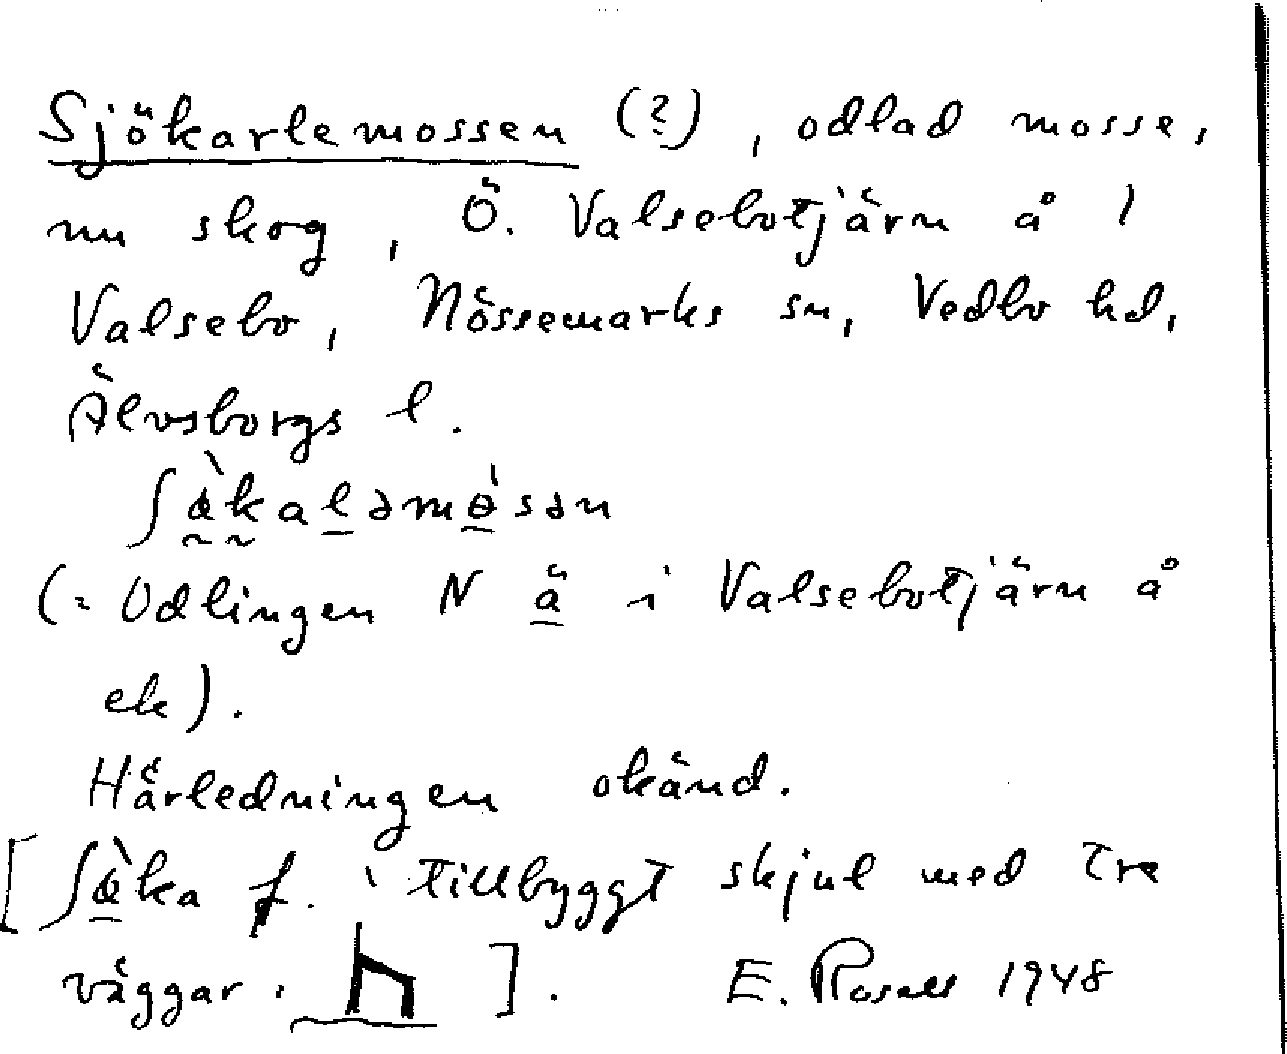 Sjökarlemossen (?), odlad mosse,
nu skog, Ö. Valsebotjärn å 1
Valsebo, Nössemarks sn, Vedbo hd,
Älvsborgs l.
(= Odlingen N ä i Valsebotjärn å
ek).
Härledningen okänd.
f. 'tillbyggt skjul med tre
väggar' ]. E. Rosell 1948